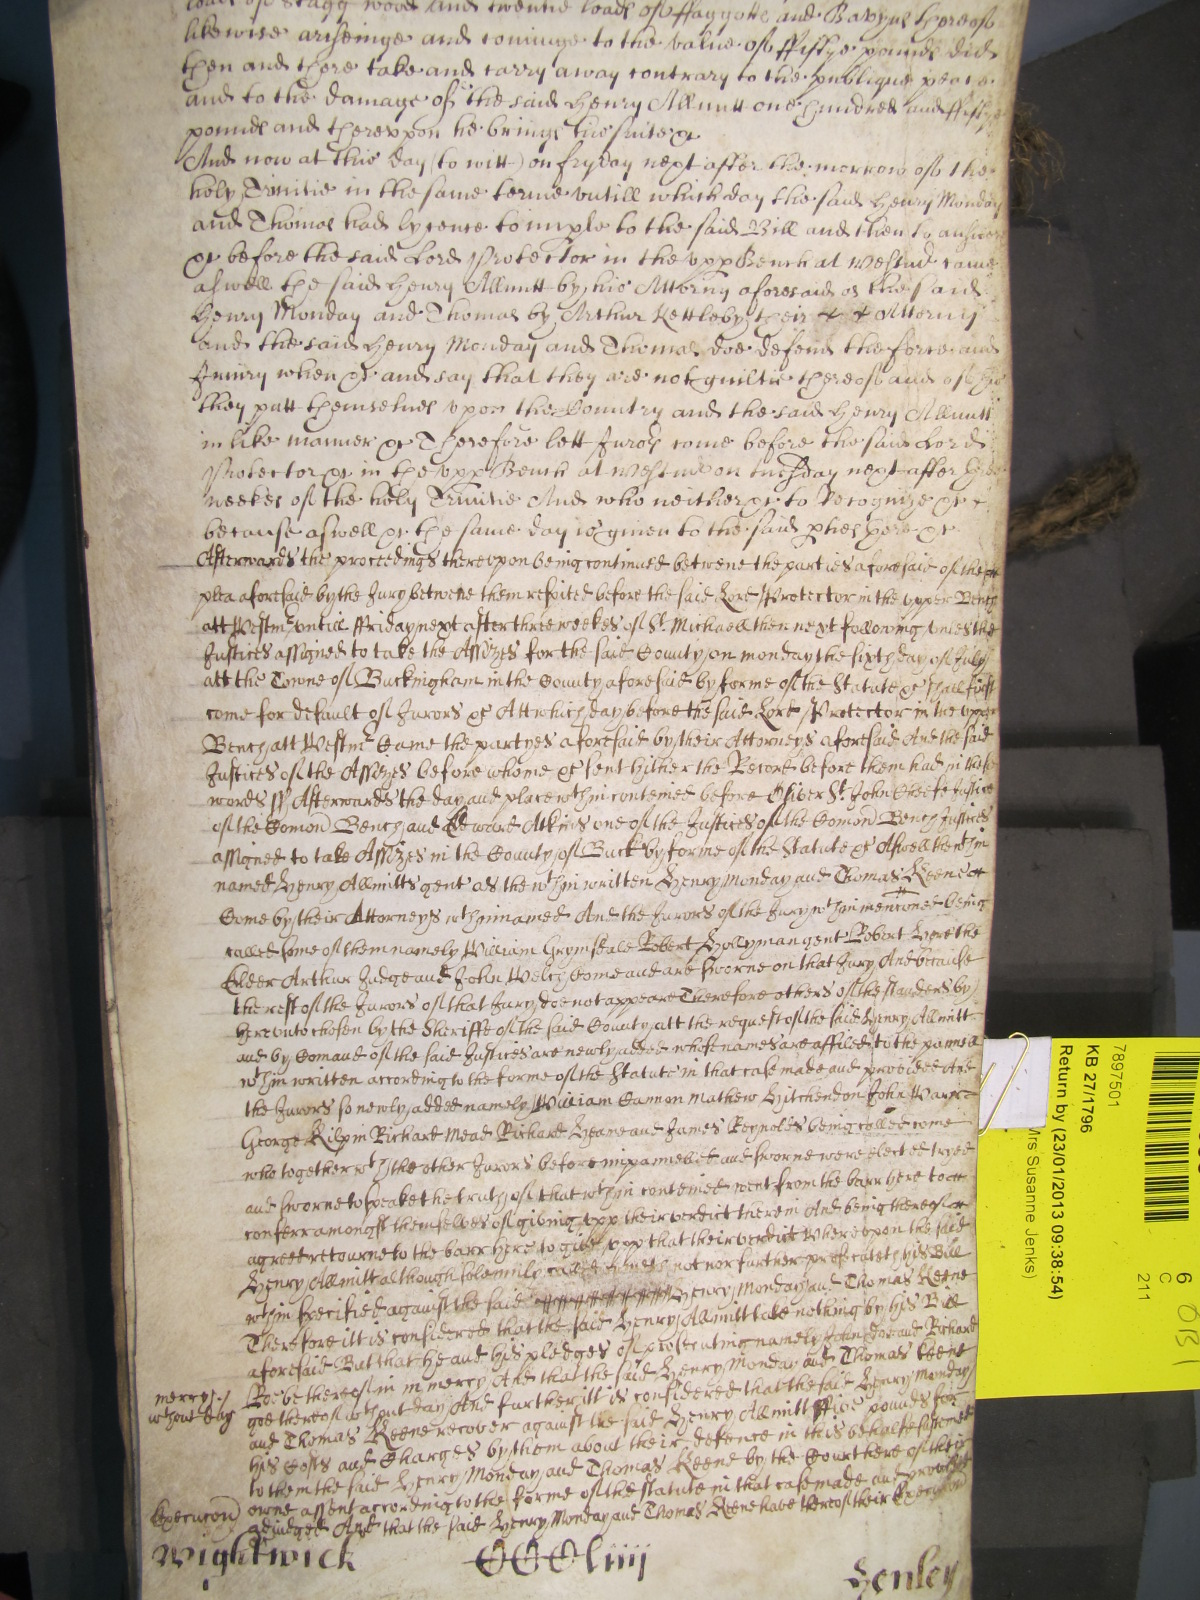 loads of Stagg wood and twentie loads of ffaggotts and Bavyns thereof
likewise ariseinge and cominge to the value of ffiftye pounds did
then and there take and carry away contrary to the publique peace
and to the damage of the said Henry Allnutt one hundred and ffiftye
pounds and thereupon he brings his suite &c
And now at this day (to witt) on fryday next after the morrow of the
holy Trinitie in the same terme untill which day the said Henry Monday
and Thomas had lycence to imple to the said Bill and then to answere
&c before the said Lord Protector in the upp Bench at Westmr came
aswell the said Henry Allnutt by his Attorny aforesaid as the said
Henry Monday and Thomas by Arthur Kettleby their Attorny
and the said Henry Monday and Thomas doe defend the force and
Iniury when &c and say that they are not guiltie thereof and of this
they putt themselves upon the Country and the said Henry Allnutt
in like manner &c Therefore lett Jurors come before the said Lord
Protector &c in the upp Bench at Westmr on tuesday next after three
weekes of the holy Trinitie And who neither &c to Recognize &c
because aswell &c the same day is given to the said pties here &c
Afterwards the proceedings thereupon being continued betweene the parties aforesaid of the
plea aforesaid by the Jury betweene them respited before the said Lord Protector in the upper Bench
att Westmr untill ffriday next after three weekes of St Michaell then next following unles the
Justices assigned to take the Assizes for the said County on monday the sixth day of July
att the Towne of Buckingham in the County aforesaid by forme of the Statute &c shall first
come for default of Jurors &c Att which day before the said Lord Protector in the upper
Bench att Westmr Came the partyes aforesaid by their Attorneys aforesaid And the said
Justices of the Assizes before whome &c sent hither the Record before them had in these
words ss Afterwards the day and place wthin conteined before Oliver St John Cheife Justice
of the Comon Bench and Edward Atkins one of the Justices of the Comon Bench Justices
assigned to take Assizes in the County of Buck by forme of the Statute &c Aswell the wthin
named Henry Allnutts gent as the wthin written Henry Monday and Thomas Keene
Come by their Attorneys wthinnamed And the Jurors of the Jury wthin mencioned being
called some of them namely William Grymsdale Robert Hollyman gent Robert Gere the
Elder Arthur Judge and John Welch Come and are sworne on that Jury And because
the rest of the Jurors of that Jury doe not appeare Therefore others of the standers by
hereunto chosen by the Sheriffe of the said County att the request of the said Henry Allnutt
and by Comand of the said Justices are newly added whose names are affiled to the pannell
wthin written according to the forme of the Statute in that case made and provided And
the Jurors so newly added namely William Cannon Mathew Hitchendon John
George Kilpin Richard Mead Richard Hearne and James Reynolds being called come
who together wth the other Jurors before impannelled and sworne were elected tryed
and sworne to speake the truth of that wthin conteined went from the barr here to
conferr amongst themselves of giving upp their verdict therein And being thereof
agreed retourne to the barr here to give upp that their verdict Whereupon the said
Henry Allnutt although solemnly called cometh not nor further prosecuteth his Bill
wthin specified against the said Henry Monday and Thomas Keene
Therefore itt is considered that the said Henry Allnutt take nothing by his Bill
aforesaid But that he and his pledges of prosecuting namely John Doe and Richard
Roe be thereof in mercy And that the said Henry Monday and Thomas Keene
mercy
goe thereof wthout day And further itt is considered that the said Henry Monday
wthout day
and Thomas Keene recover against the said Henry Allnutt ffive pounds for
his Costs and Charges by them about their defence in this behalfe susteined
to them the said Henry Monday and Thomas Keene by the Court here of their
owne assent according to the forme of the Statute in that case made and provided
Execucon
adjudged And that the said Henry Monday and Thomas Keene have thereof their Execucon
Wightwick CCCCliiij Henley
7897501
KB 27/1796
Return by (23/01/2013 09:38:54)
Mrs Susanne Jenks)
6
C
211